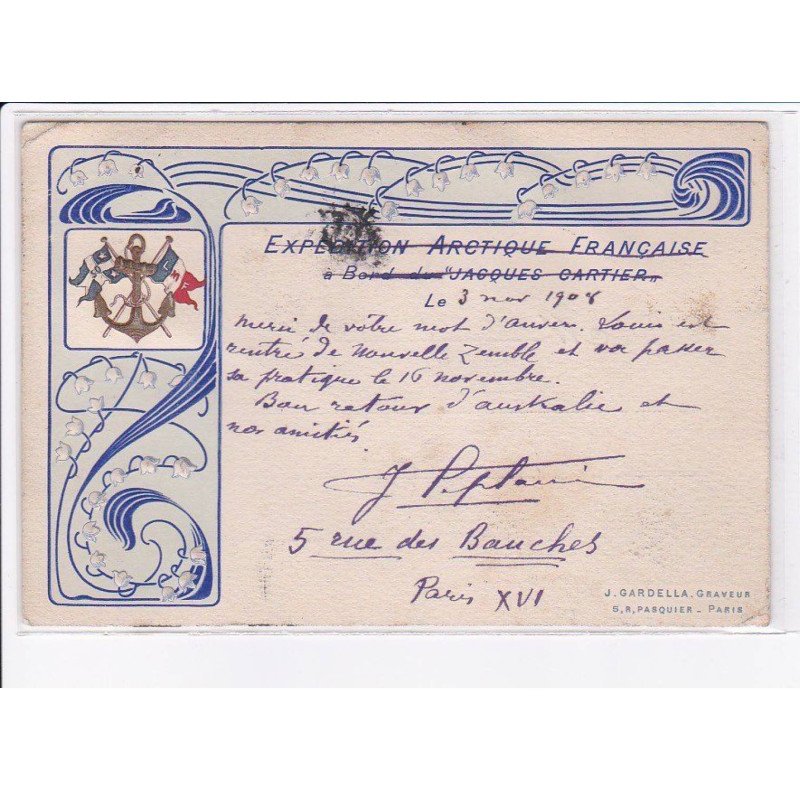 EXPEDITION ARCTIQUE FRANÇAISE
à Bord du "JACQUES CARTIER"
Le 3 nov 1908
Merci de votre mot d'anvers. Louis est
rentré de Nouvelle Zemble et va passer
sa pratique le 16 novembre.
Bon retour d'australie et
nos amitiés
J
5 rue des Bauches
Paris XVI
J. GARDELLA. GRAVEUR
5, R, PASQUIER _ PARIS